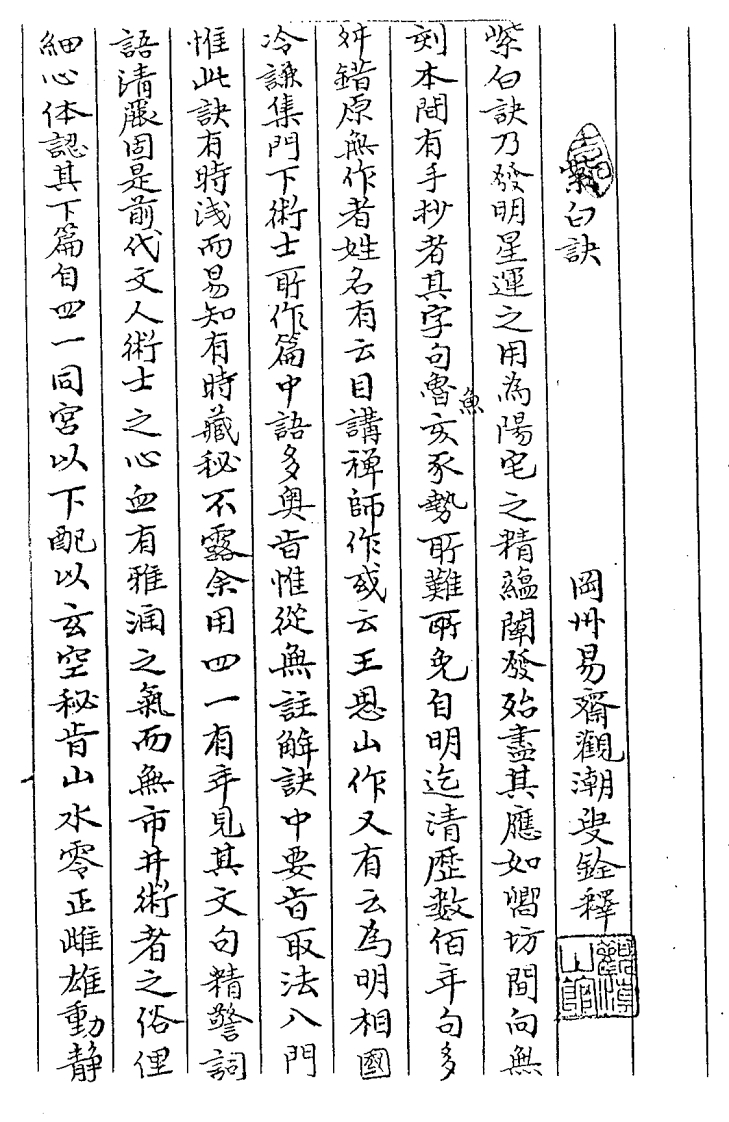 紫白訣
岡州易齋觀潮叟銓釋
紫白訣乃發明星運之用為陽宅之精蘊闡發殆盡其應如嚮坊間向無
刻本間有手抄者其字句魯亥豕勢所難所免自明迄清歷數佰年句多
魚
舛錯原無作者姓名有云目講禅師作或云王思山作又有云為明相國
冷謙集門下術士所作篇中語多奥旨惟從無註解訣中要旨取法八門
惟此訣有時浅而易知有時藏秘不露余用四一有年見其文句精警詞
語清嚴固是前代文人術士之心血有雅潤之氣而無市井術者之俗俚
細心体認其下篇自四一同宮以下配以玄空秘旨山水零正雌雄動静